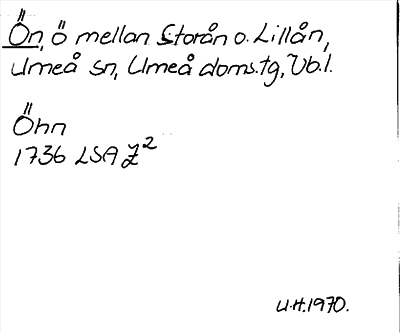 Ön, ö mellan Storån o. Lillån,
Umeå sn, Umeå doms.tg, Vb.l.
Öhn
1736 LSA Z²
U.H. 1970.